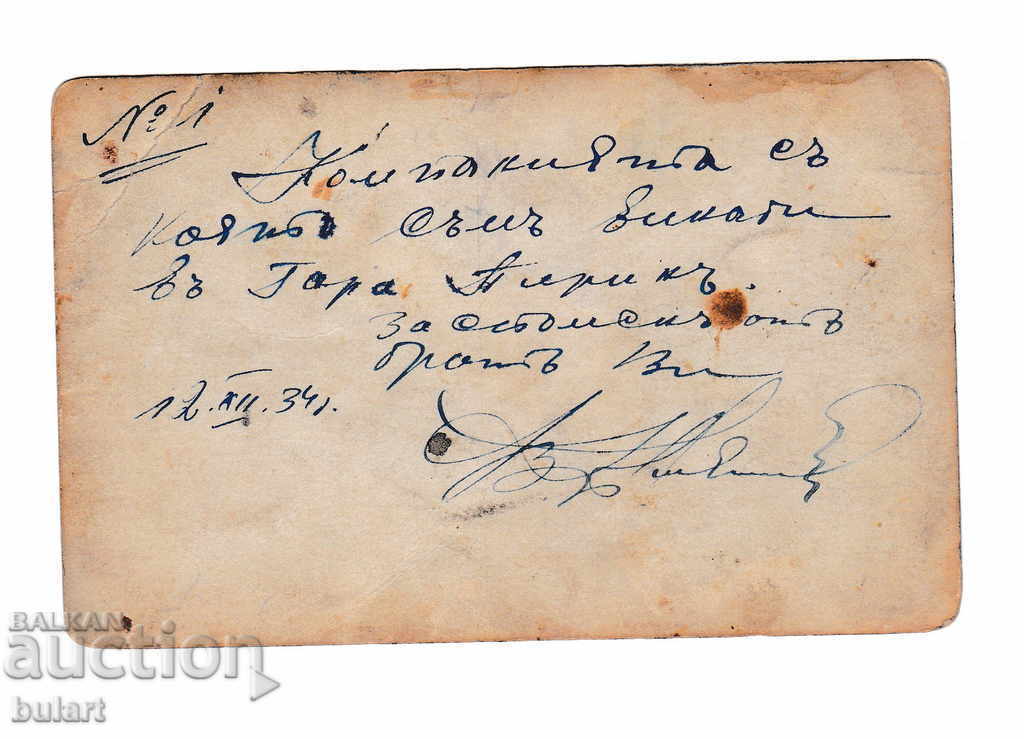 № 1
Компанията съ
която съмъ викати
въ Гара Пирин.
За споменъ отъ
братъ Ви
12.XII.34г.
BALKAN
auction
bulart